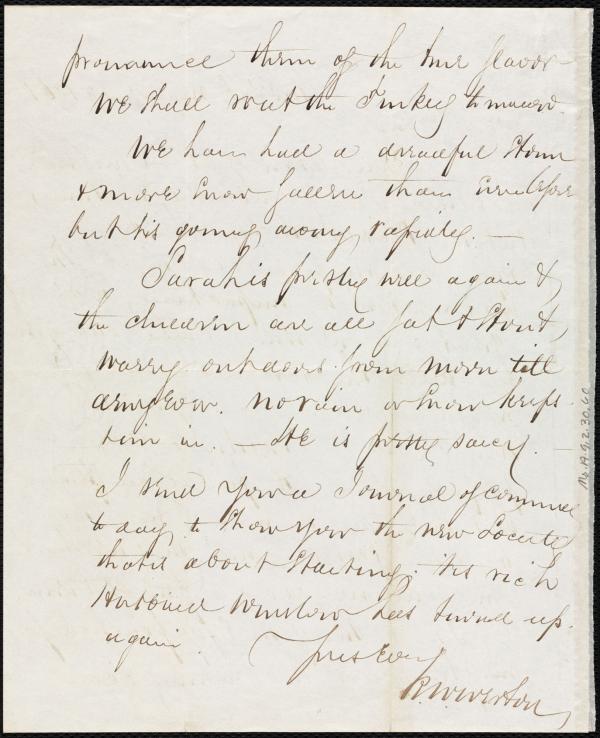 pronounce them of the true flavor
We shall roast the Turkey tomorrow.
We have had a dreadful storm
& more snow fallen than ever before
but tis going away rapidly. —
Sarah is pretty well again &
the children are all fat & stout,
out doors from morn till
no rain or snow keeps
him in. — He is pretty saucy.
I send you a Journal of Commerce
to day to show you the new Society
that is about starting; its rich
Hubbard Winslow has turned up
again. Yours Ever
R. W. Weston
Ms. A. 9. 2. 30, 60